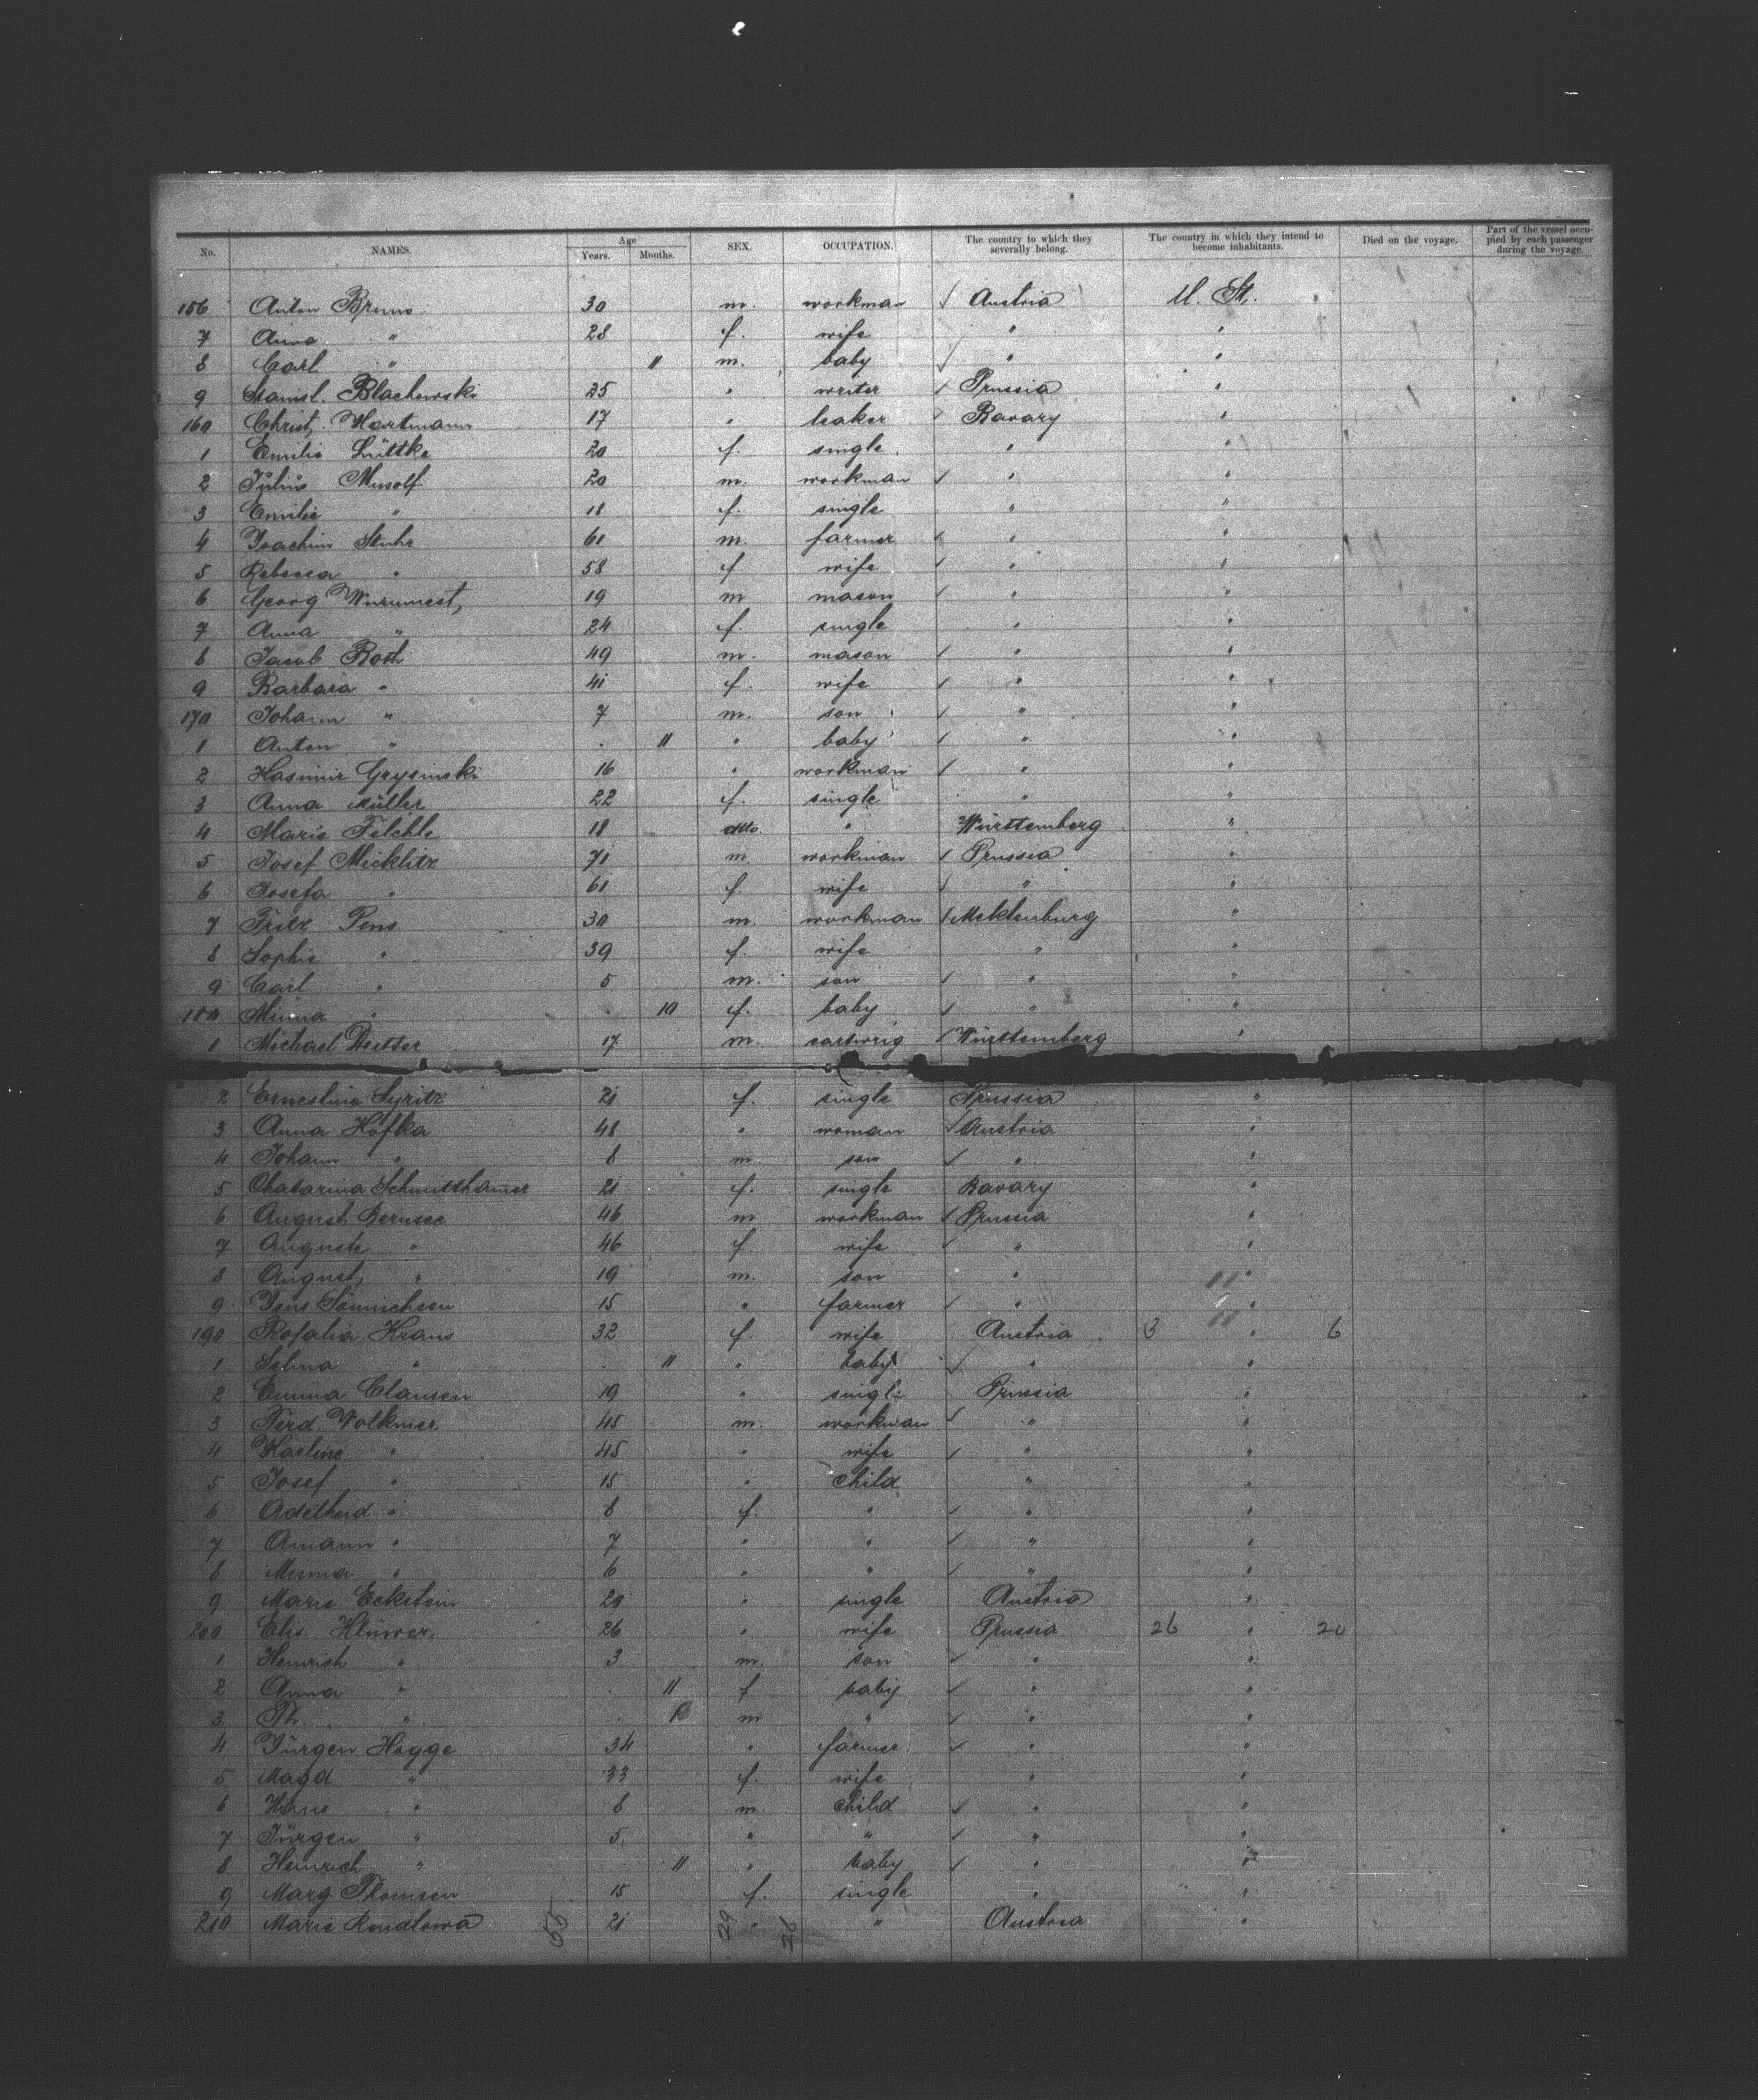 No. NAMES. Age Years. Months. SEX. OCCUPATION. The country to which they severally belong. The country in which they intend to become inhabitants. Died on the voyage. Part of the vessel occupied by each passenger during the voyage.
156 Anton Bruns 30 m. workman Austria U. St.
7 Anna " 28 f. wife " "
8 Carl " 11 m. baby " "
9 Stanisl. Blachowski 25 " writer Prussia "
160 Christ. Hartmann 17 " beaker Bavary "
1 Emilie Lüttke 20 f. single " "
2 Julius Musolf 20 m. workman " "
3 Emilie " 18 f. single " "
4 Joachim Stuhr 61 m. farmer " "
5 Rebecca " 58 f. wife " "
6 Georg 19 m mason " "
7 Anna " 24 f. single " "
8 Jacob Roth 49 m. mason " "
9 Barbara " 41 f. wife " "
170 Johann " 7 m. son " "
1 Anton " 11 " baby " "
2 Kasimir Grysinski 16 " workman " "
3 Anna Müller 22 f. single " "
4 Marie Felchle 18 dtto. " Württemberg "
5 Josef Micklitz 71 m. workman Prussia "
6 Josefa " 61 f. wife " "
7 Fritz Pens 30 m. workman Meklenburg "
8 Sophie " 39 f. wife " "
9 Carl " 5 m. son " "
180 Minna " 10 f. baby " "
1 Michael 17 m. cartwrig Württemberg "
2 Ernestine Syritz 21 f. single Prussia "
3 Anna Hofka 48 " woman Austria "
4 Johann " 8 m. son " "
5 Chatarina Schmitthamer 21 f. single Bavary "
6 August Bernsee 46 m workman Prussia "
7 Auguste " 46 f. wife " "
8 August " 19 m. son " "
9 Jens Sönnichsen 15 " farmer " "
190 Rosalia Krans 32 f. wife Austria 3 " 6
1 Selma " 11 " baby " "
2 Emma Clausen 19 " single Prussia "
3 Ferd. Volkmer 45 m. workman " "
4 Karline " 45 " wife " "
5 Josef " 15 " child " "
6 Adelheid " 8 f. " " "
7 Amann " 7 " " " "
8 Minna " 6 " " " "
9 Marie Eckstein 20 " single Austria "
200 Elis. Klüwer 26 " wife Prussia 26 " 20
1 Heinrich " 3 m. son " "
2 Anna " 11 f baby " "
3 " m " " "
4 Jürgen Hagge 34 " farmer " "
5 Magd. " 33 f. wife " "
6 Hans " 8 m. child " "
7 Jürgen " 5 " " " "
8 Heinrich " 11 " baby " "
9 Marg. Thomsen 15 f. single " "
210 Marie Roudlowa 21 " " Austria "
55 29 26